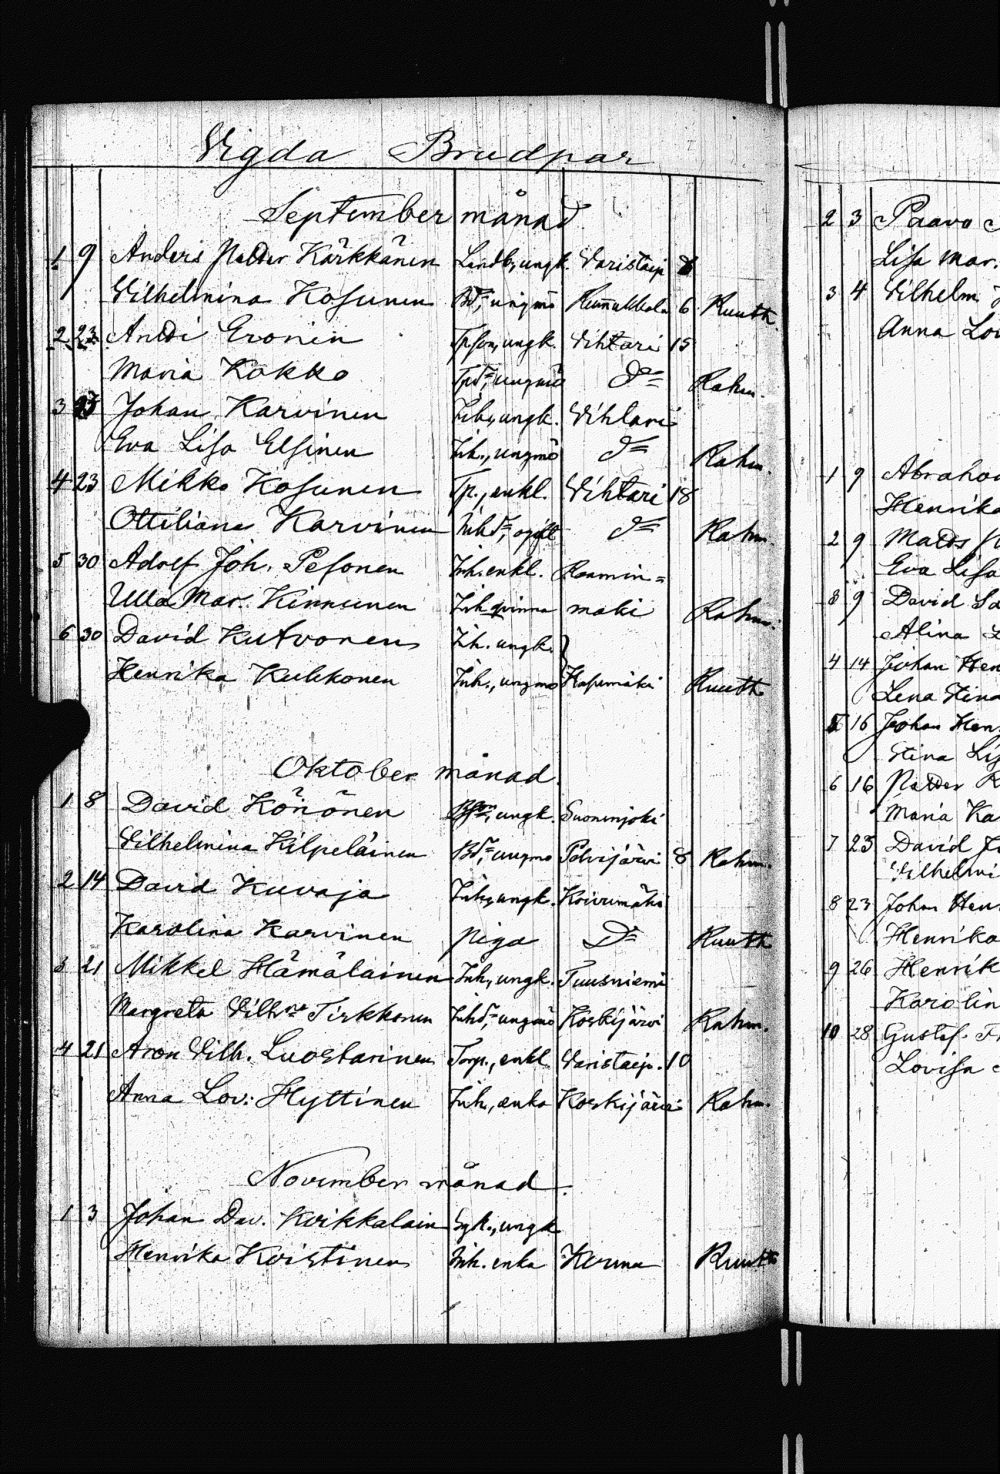 Vigda Brudpar
September månad
1 9 Anders Petter Kärkkänen Landb, ungk. Varistaip 8
Vilhelmina Kosunen Bd, ungmö 6 Ruuth
2 23 Antti Eronen Tpson, ungk. Vihtari 15
Maria Kokko Tpd, ungmö D Rahm.
3 23 Johan Karvinen Inh, ungk. Vihtari
Eva Lisa Elsinen Inh., ungmö D Rahm.
4 23 Mikko Kosunen Tp., enkl. Vihtari 18
Ottiliana Karvinen Inhd, ogift D Rahm.
5 30 Adolf Joh. Pesonen Inh. enkl. Raamin=
Ulla Mar. Kinnunen Inh. qvinna mäki Rahm.
6 30 David Kutvonen Inh. ungk.
Henrika Kukkonen Inh., ungmö Hapumäki Ruuth
Oktober månad.
1 8 David Könönen Bson, ungk. Suoninjoki
Vilhelmina Kilpeläinen Bd, ungmö Polvijärvi 8 Rahm.
2 14 David Kuvaja Inh, ungk. Koivumäki
Karolina Karvinen piga D Ruuth
3 21 Mikkel Hämälainen Inh, ungk. Tuusniemi
Margreta Vilh Tirkkonen Inhd, ungmö Koskijärvi Rahm.
4 21 Aron Vilh. Luostarinen Torp., enkl. Varistaip. 10
Anna Lov. Hyttinen Inh., enka Koskijärvi Rahm.
November månad.
1 3 Johan Dav. ungk
Henrika Koistinen Inh. enka Kerma Ruuth
2 3 Paavo
Lisa Mar.
3 4 Vilhelm
Anna
1 9
Henrika
2 9 Matts
Eva Lisa
3 9 David
Alina
4 14 Johan Hen
Lena Stina
5 16 Johan Hen
Stina
6 16 Petter
Maria Ka
7 23 David
8 23 Johan
Henrika
9 26 Henrik
Karolin
10 28 Gustaf
Lovisa